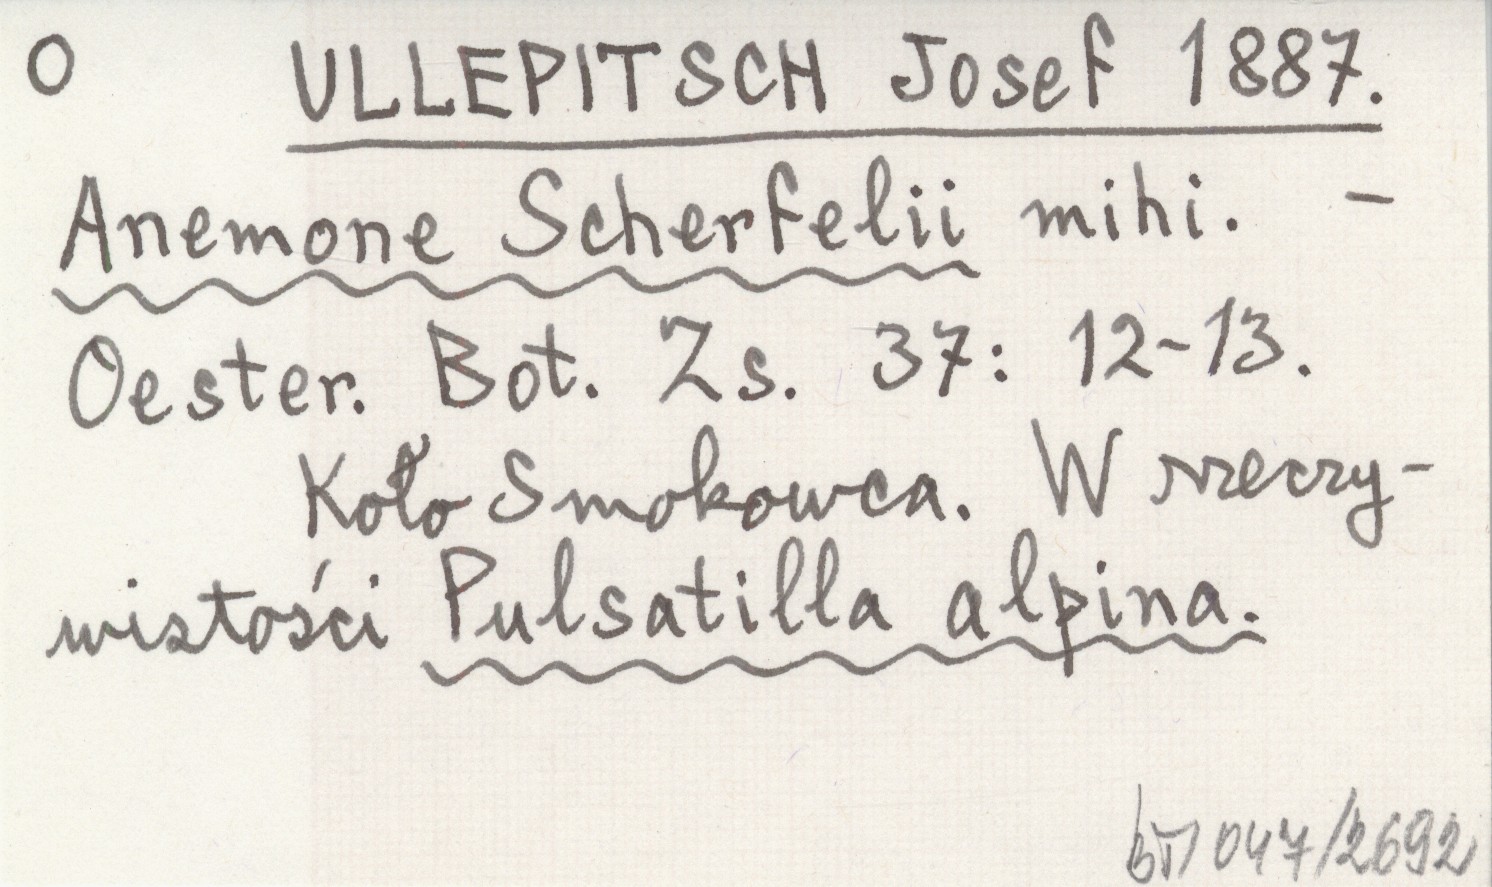 O ULLEPITSCH Josef 1887.
Anemone Scherfelii mihi. –
Oester. Bot. Zs. 37: 12-13.
Koło Smokowca. W rzeczy-
wistości Pulsatilla alpina.
047/2692